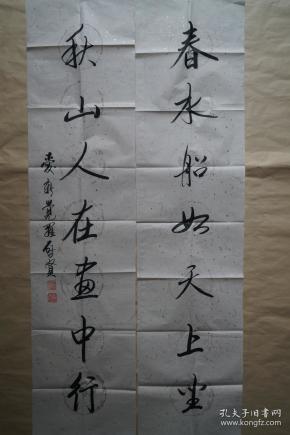 春水船如天上坐
秋山人在画中行
爱新觉羅啟賓
孔夫子旧书网
www.kongfz.com